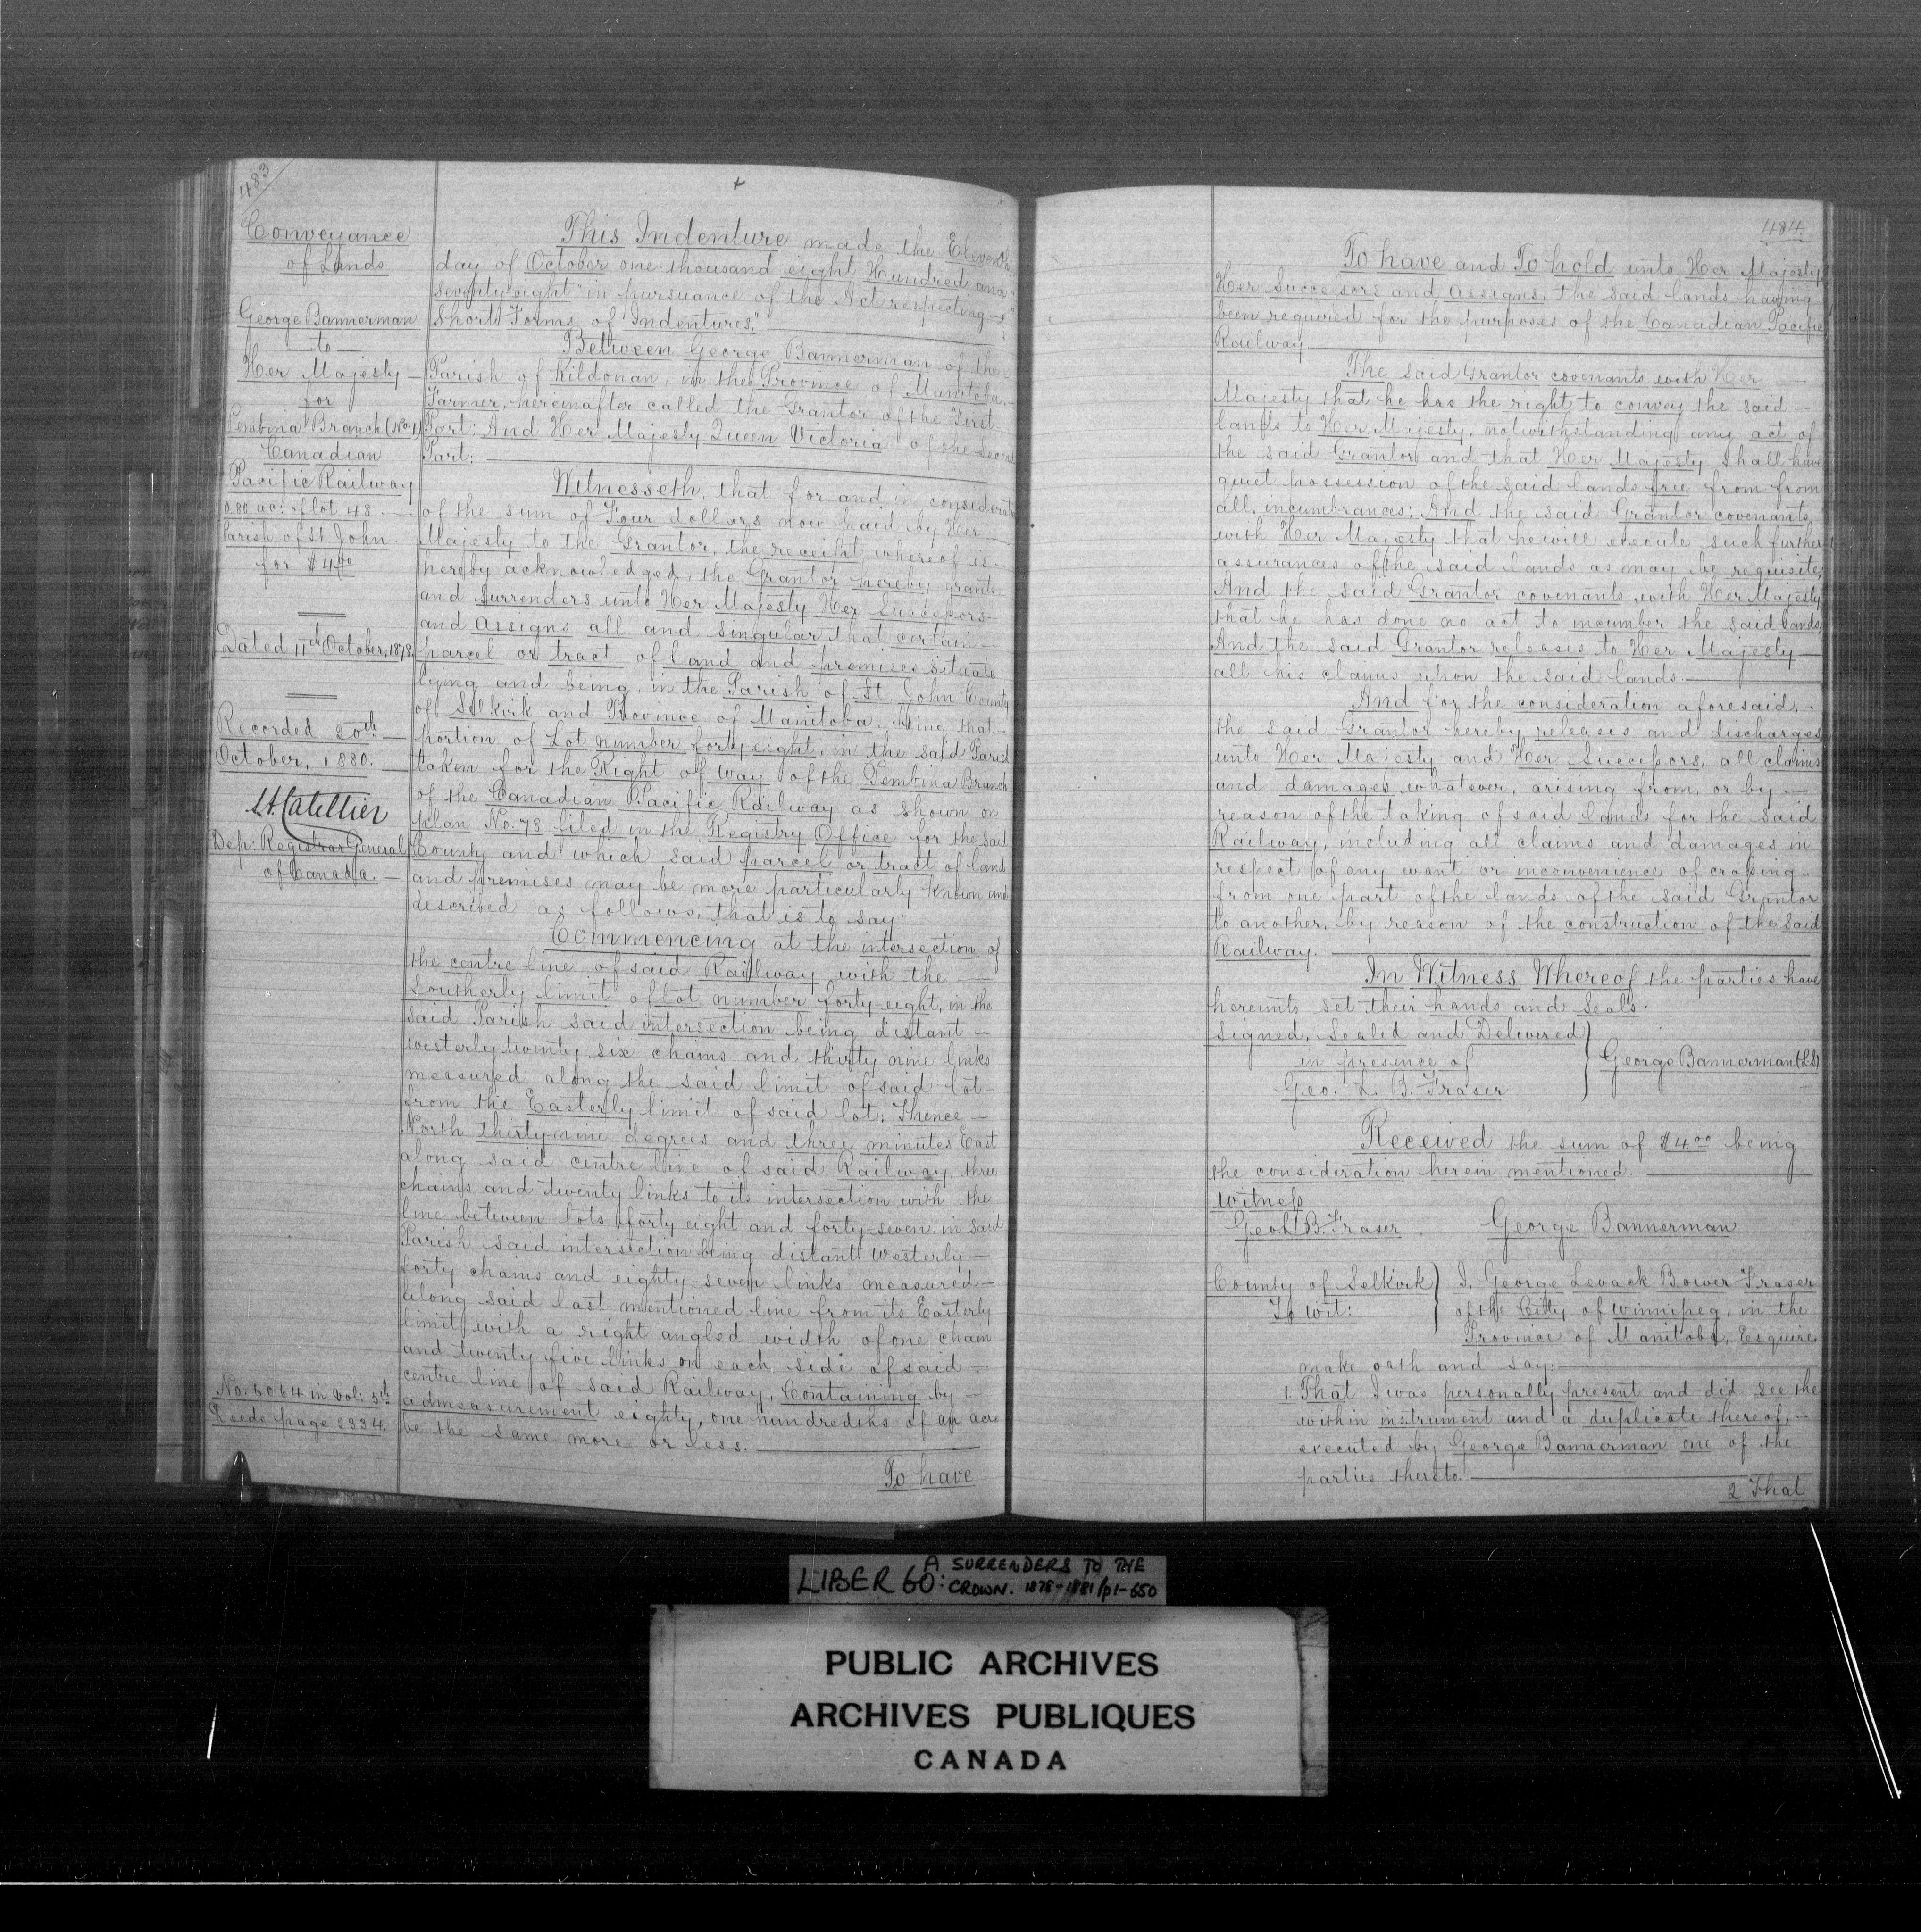 483
Conveyance
of Lands
George Bannerman
to
Her Majesty
for
Pembina Branch (No. 1)
Canadian
Pacific Railway
0.80 ac: of lot 48
Parish of St. John
for $4.00
Dated 11th October, 1878
Recorded 20th
October, 1880.
Dep: Registrar General
of Canada.
No. 5064 in Vol: 5th
Reeds page 2334.
This Indenture made the Eleventh
day of October one thousand eight Hundred and
seventy eight "in pursuance of the Act respecting
Short Forms of Indentures,"
Between George Bannerman of the
Parish of Kildonan, in the Province of Manitoba,
Farmer, hereinafter called the Grantor of the First
Part: And Her Majesty Queen Victoria of the Second
Part:
Witnesseth, that for and in considerat
of the sum of Four dollars now paid by Her
Majesty to the Grantor, the receipt whereof is
hereby acknowledged, the Grantor hereby grants
and surrenders unto Her Majesty Her Successors
and Assigns, all and singular that certain
parcel or tract of land and premises situate
lying and being, in the Parish of St. John County
of Selkirk and Province of Manitoba, being that
portion of Lot number forty-eight, in the said Parish
taken for the Right of way of the Pembina Branch
of the Canadian Pacific Railway as shown on
plan No. 78 filed in the Registry Office for the said
County and which said parcel or tract of land
and premises may be more particularly known and
described as follows, that is to say:
Commencing at the intersection of
the centre line of said Railway with the
Southerly limit of lot number forty-eight, in the
said Parish said intersection being distant
westerly twenty six chains and thirty nine links
measured along the said limit of said lot
from the Easterly limit of said lot; Thence
North thirty-nine degrees and three minutes East
along said centre line of said Railway, three
chains and twenty links to its intersection with the
line between lots forty eight and forty-seven in said
Parish said intersection being distant westerly
forty chains and eighty-seven links measured
along said last mentioned line from its Easterly
limit, with a right angled width of one chain
and twenty five links on each side of said
centre line of said Railway, Containing by
admeasurement eighty, one hundredths of an acre
be the same more or less.
To have
484
To have and To hold unto Her Majesty,
Her Successors and Assigns, the said lands having
been required for the purposes of the Canadian Pacific
Railway
The said Grantor covenants with Her
Majesty that he has the right to convey the said
lands to Her Majesty, notwithstanding any act of
the said Grantor and that Her Majesty shall have
quiet possession of the said lands free from from
all incumbrances; And the said Grantor covenants
with Her Majesty that he will execute such further
assurances of the said lands as may be requisite;
And the said Grantor covenants with Her Majesty
that he has done no act to incumber the said lands
And the said Grantor releases to Her Majesty
all his claims upon the said lands.
And for the consideration aforesaid,
the said Grantor hereby releases and discharges
unto Her Majesty and Her Successors, all claims
and damages whatever, arising from, or by
reason of the taking of said lands for the said
Railway, including all claims and damages in
respect of any want or inconvenience of crossing
from one part of the lands of the said Grantor
to another, by reason of the construction of the said
Railway.
In Witness Whereof the parties have
hereunto set their hands and seals.
Signed, Sealed and Delivered
in presence of
Geo. L. B. Fraser
George Bannerman (L.S)
Received the sum of $4.00 being
the consideration herein mentioned.
Witness
Geo L B. Fraser
George Bannerman
County of Selkirk
To Wit:
I, George Levack Bower Fraser
of the City of Winnipeg, in the
Province of Manitoba, Esquire
make oath and say:
1. That I was personally present and did see the
within instrument and a duplicate thereof,
executed by George Bannerman one of the
parties thereto.
2 That
LIBER 60: A SURRENDERS TO THE
CROWN. 1878-1881/p1-650
PUBLIC ARCHIVES
ARCHIVES PUBLIQUES
CANADA